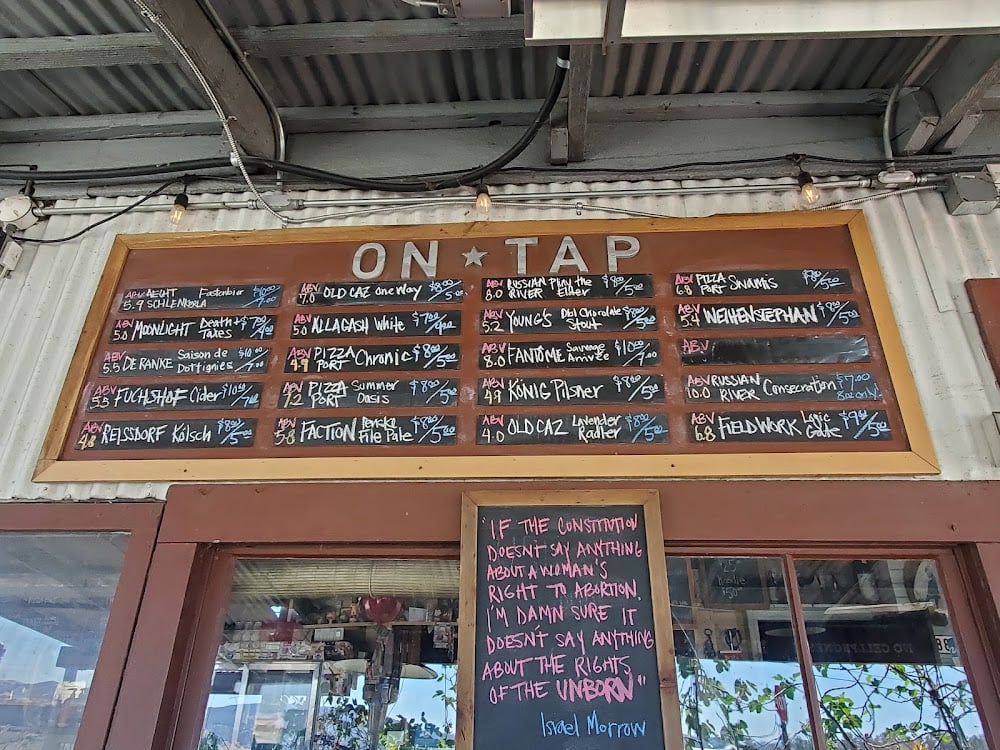 ON ★ TAP
ABV 5.9 AECHT SCHLENKERLA Fastenbier $10.00/7.00
ABV 5.0 MOONLIGHT Death + Taxes $7.00/4.00
ABV 5.5 DE RANKE Saison de Dottignies $10.00/7.00
ABV 5.5 FUCHSHOF Cider $10.00/7.00
ABV 4.8 REISSDORF Kölsch $8.00/5.00
ABV 7.0 OLD CAZ one way $8.00/5.00
ABV 5.0 ALLAGASH White $7.00/4.00
ABV 4.9 PIZZA PORT Chronic $8.00/5.00
ABV 7.2 PIZZA PORT Summer Oasis $8.00/5.00
ABV 5.8 FACTION Penske File Pale $8.00/5.00
ABV 8.0 RUSSIAN RIVER Pliny the Elder $8.00/5.00
ABV 5.2 YOUNG'S Dbl Chocolate Stout $8.00/5.00
ABV 8.0 FANTÔME Sauvage Arrivée $10.00/7.00
ABV 4.9 KÖNIG Pilsner $8.00/5.00
ABV 4.0 OLD CAZ Lavender Radler $8.00/5.00
ABV 6.8 PIZZA PORT Swamis $8.00/5.00
ABV 5.4 WEIHENSTEPHAN $8.00/5.00
ABV
ABV 10.0 RUSSIAN RIVER Consecration $7.00 8oz only
ABV 6.8 FIELDWORK Logic Gate $9.00/5.00
"IF THE CONSTITUTION
DOESN'T SAY ANYTHING
ABOUT A WOMAN'S
RIGHT TO ABORTION,
I'M DAMN SURE IT
DOESN'T SAY ANYTHING
ABOUT THE RIGHTS
OF THE UNBORN"
Israel Morrow
NO CELLPHONES